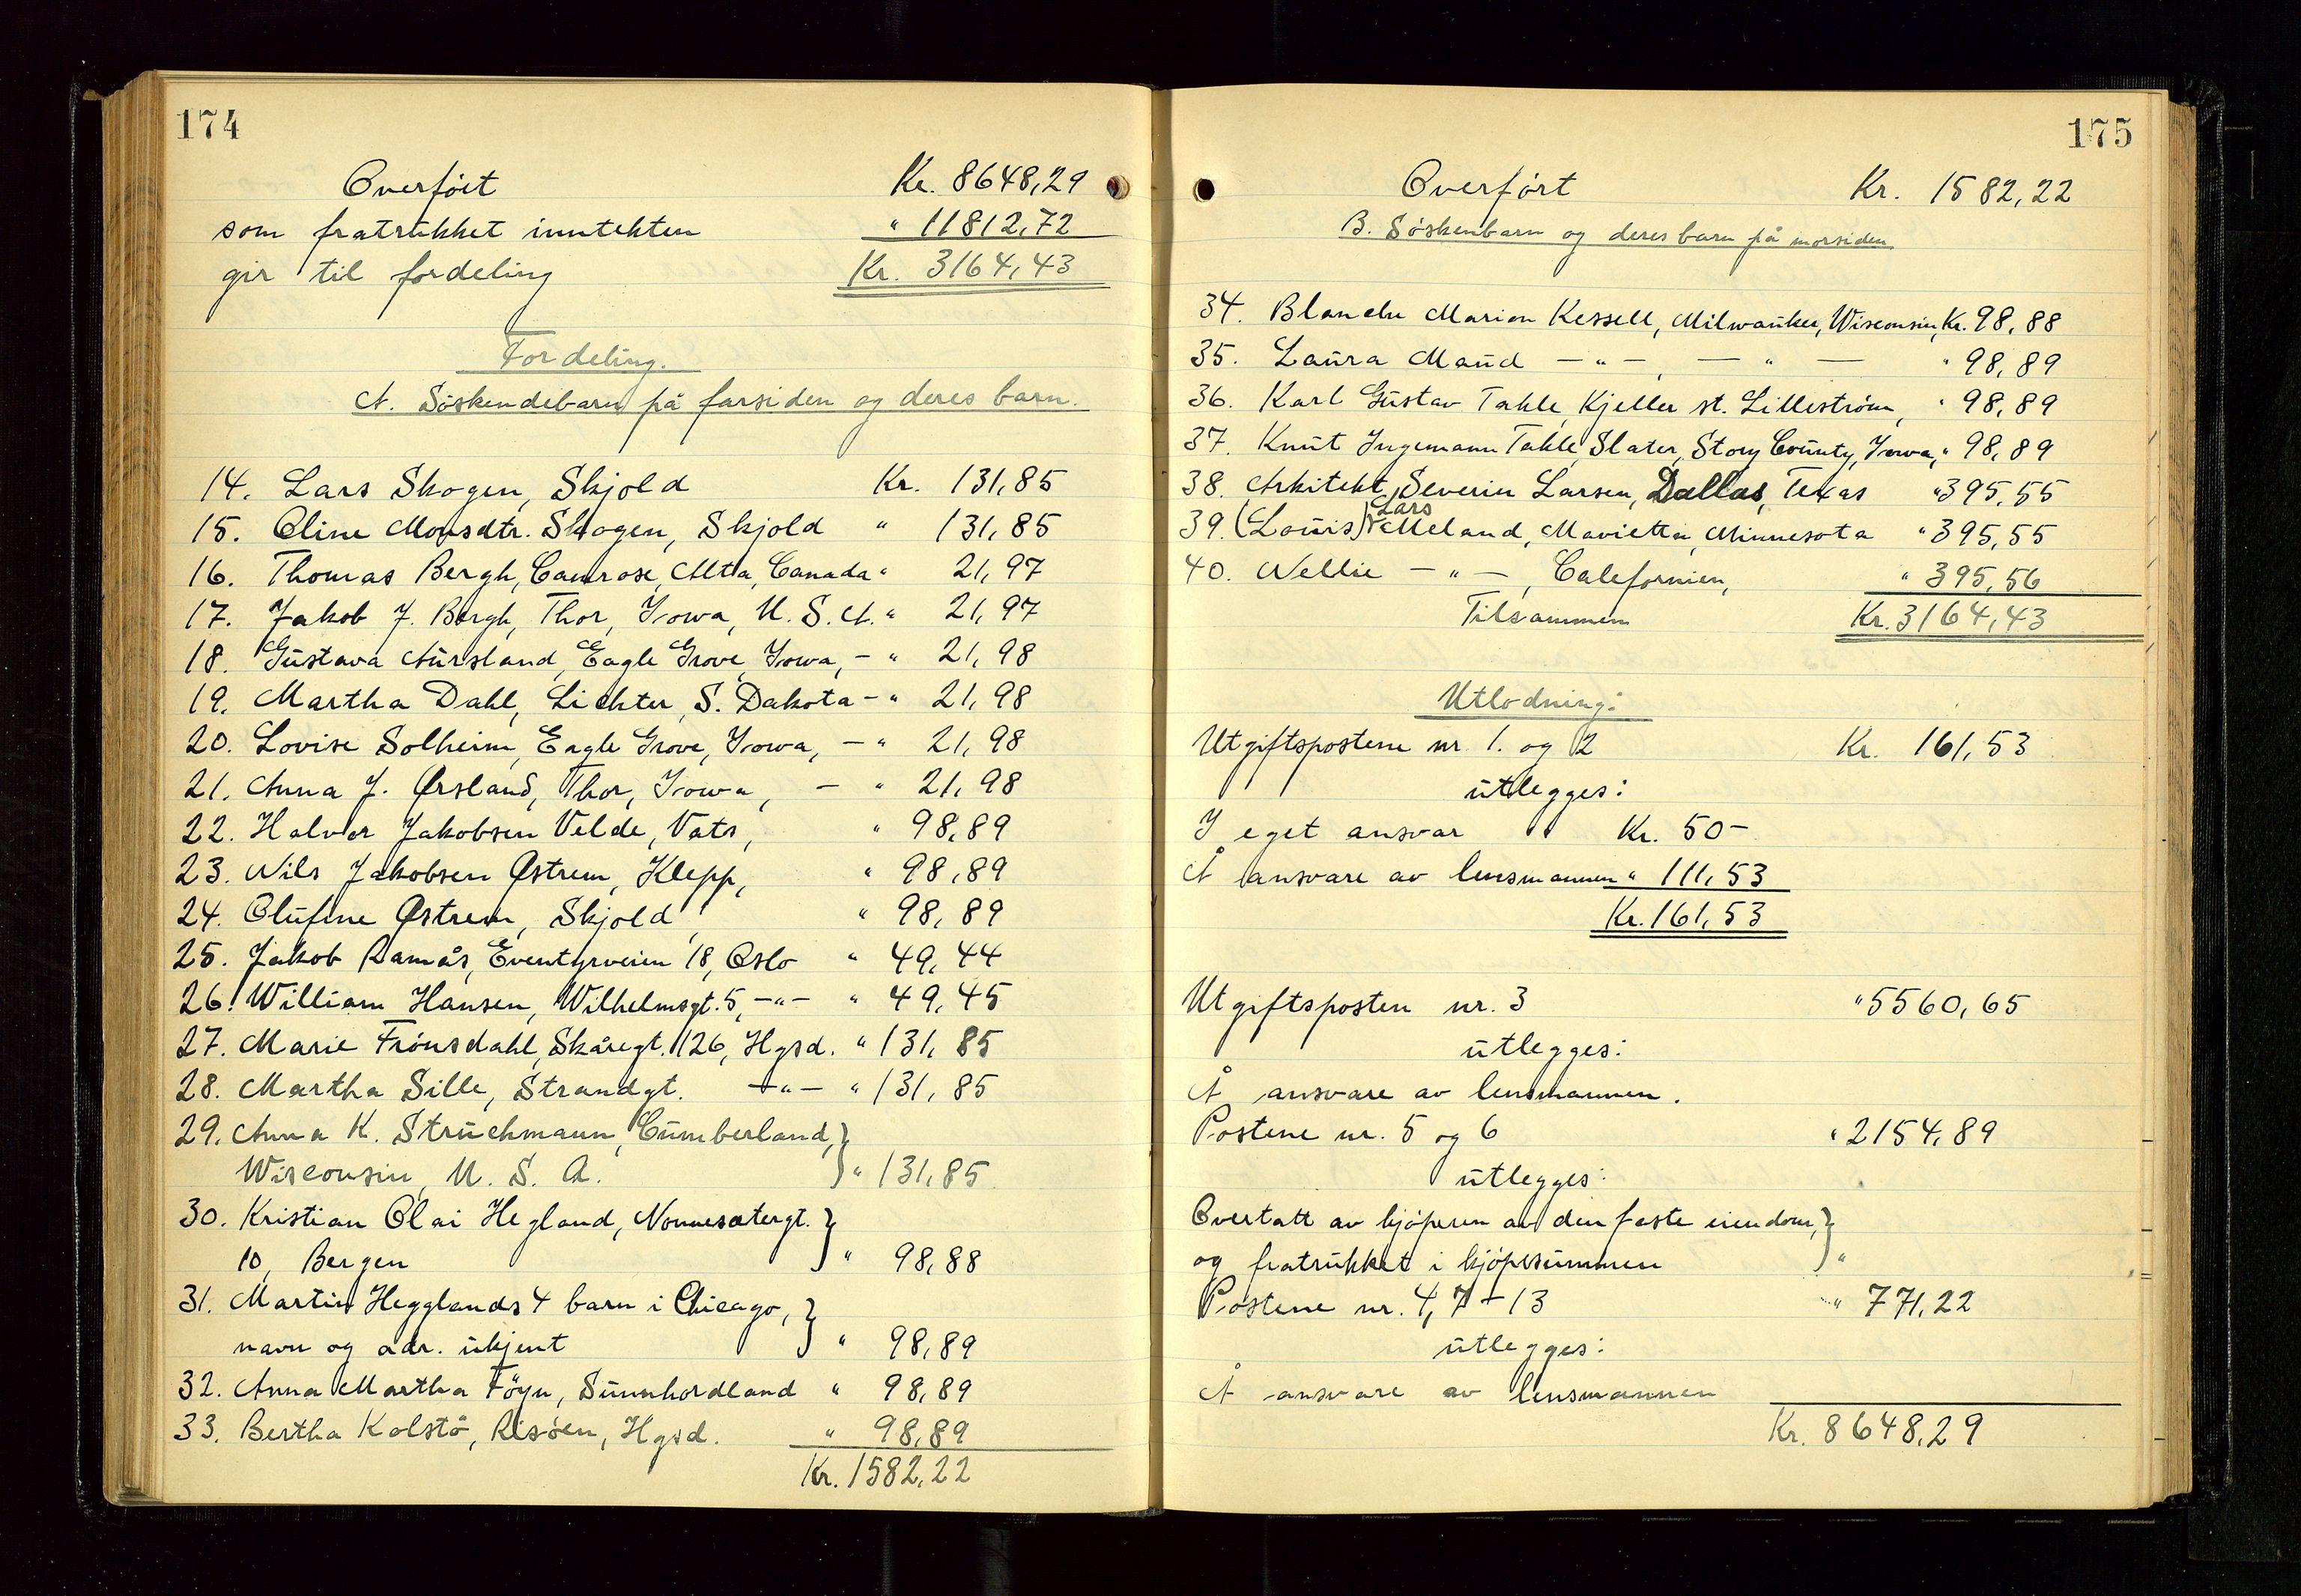 174
Overført Kr. 8648,29
som fratrukket inntekten " 11812,72
gir til fordeling Kr. 3164,43
Fordeling.
A. Söskendebarn på farsiden og deres barn.
14. Lars Skogen, Skjold Kr. 131,85
15. Oline Monsdtr. Skogen, Skjold " 131,85
16. Thomas Bergh, Camrose, Alta, Canada " 21,97
17. Jakob J. Bergh, Thor, Iowa, U. S. A. " 21,97
18. Gustava Aursland, Eagle Grove, Iowa, - " 21,98
19. Martha Dahl, Lichter, S. Dakota - " 21,98
20. Lovise Solheim, Eagle Grove, Iowa, - " 21,98
21. Anna J. Ørsland, Thor, Iowa, - " 21,98
22. Halvor Jakobsen Velde, Vats, " 98,89
23. Nils Jakobsen Østrem, Klepp, " 98,89
24. Olufine Østrem, Skjold, " 98,89
25. Jakob Ramås, Eventyrveien 18, Oslo " 49,44
26. William Hansen, Wilhelmsgt. 5, -"- " 49,45
27. Marie Frönsdahl, Skåregt. 126, Hgsd. " 131,85
28. Martha Sille, Strandgt. -"- " 131,85
29. Anna K. Struchmann, Cumberland,
Wisconsin, U. S. A. " 131,85
30. Kristian Olai Hegland, Nonnesætergt.
10, Bergen " 98,88
31. Martin Hegglands 4 barn i Chicago,
navn og adr. ukjent " 98,89
32. Anna Martha Föyn, Sunnhordland " 98,89
33. Bertha Kolstö, Risöen, Hgsd. " 98,89
Kr. 1582,22
175
Overført Kr. 1582,22
B. Söskenbarn og deres barn på morsiden
34. Blanche Marion Kessell, Milwaukee, Wisconsin, Kr. 98,88
35. Laura Maud -"-, - " - " 98,89
36. Karl Gustav Takle, Kjeller st. Lilleström, " 98,89
37. Knut Ingemann Takle, Slater, Story County, Iowa, " 98,89
38. Arkitekt, Severin Larsen, Dallas, Texas " 395,55
39. (Louis) Lars Meland, Marietta, Minnesota " 395,55
40. Nellie -"-, Calefornien, " 395,56
Tilsammen Kr. 3164,43
Utlodning:
Utgiftspostene nr. 1. og 2 Kr. 161,53
utlegges:
I eget ansvar Kr. 50-
Å ansvare av lensmannen " 111,53
Kr. 161,53
Utgiftsposten nr. 3 " 5560,65
utlegges:
Å ansvare av lensmannen.
Postene nr. 5 og 6 " 2154,89
utlegges:
Overtatt av kjöperen av den faste eiendom,
og fratrukket i kjöpesummen "
Postene nr. 4, 7 - 13 " 771,22
utlegges:
Å ansvare av lensmannen
Kr. 8648,29